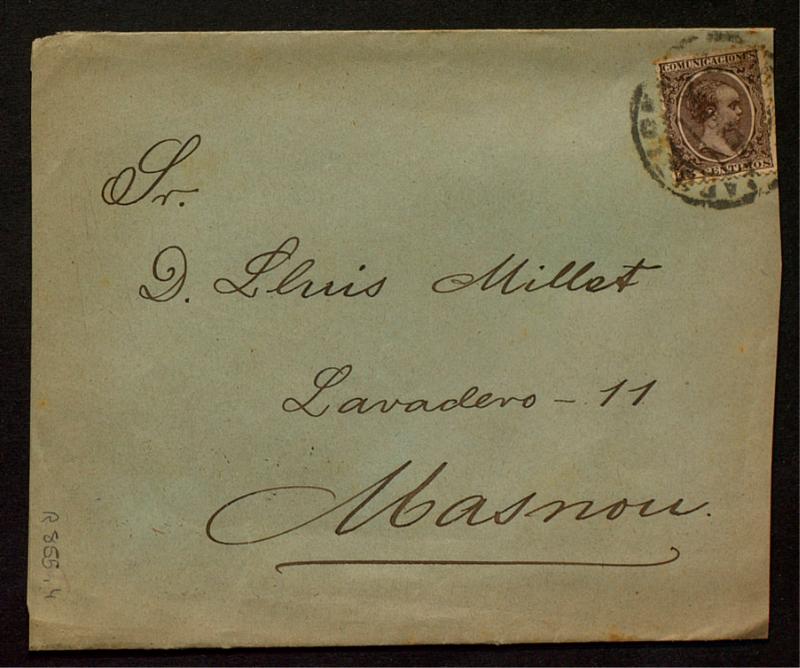 COMUNICACIONES
15 CENTIMOS
Sr.
D. Lluis Millet
Lavadero - 11
Masnou.
R 855.4